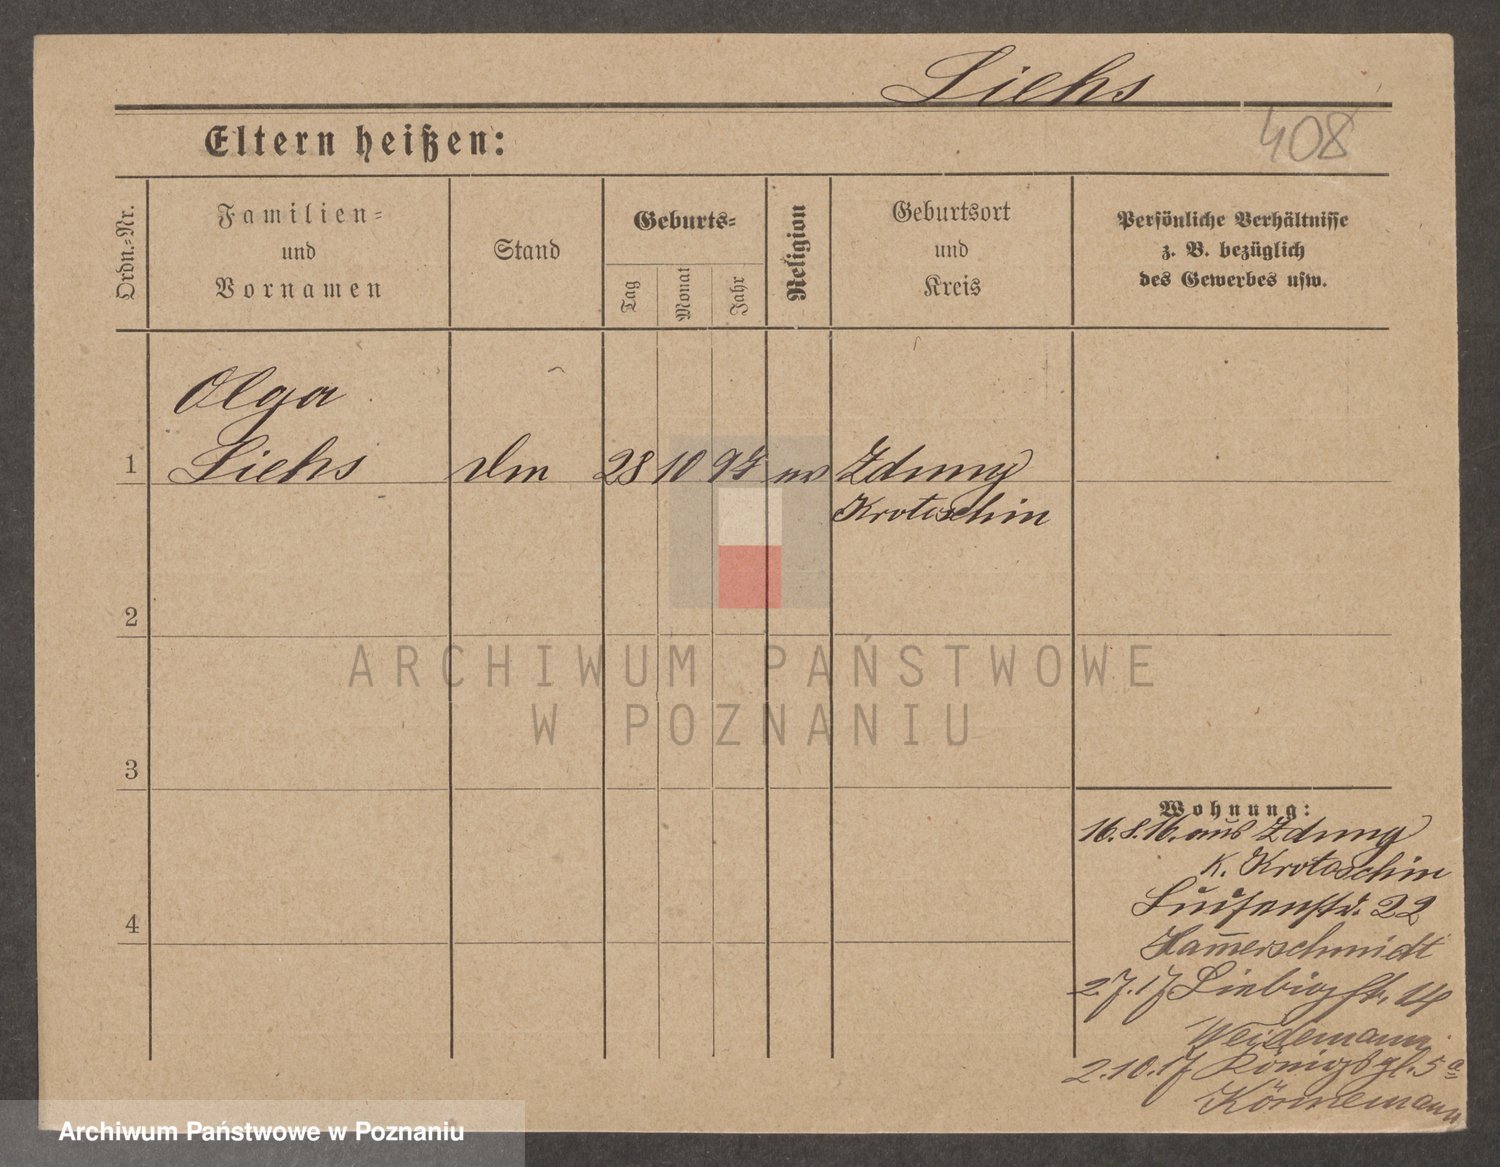 Liehs
408
Eltern heißen:
Ordn.-Nr.
Familien-
und
Vornamen
Stand
Geburts-
Tag
Monat
Jahr
Religion
Geburtsort
und
Kreis
Persönliche Verhältnisse
z. B. bezüglich
des Gewerbes usw.
Olga
1 Liehs 28 10 Zduny
Krotoschin
2
3
4
Wohnung:
16.8.16. aus Zduny
K. Krotoschin
Luisenstr. 22
Ham̅erschmidt
2.7.17 Liebigstr. 14
Weidemann
2.10.17 Königspl. 5a
Könnemann
ARCHIWUM PAŃSTWOWE
W POZNANIU
Archiwum Państwowe w Poznaniu